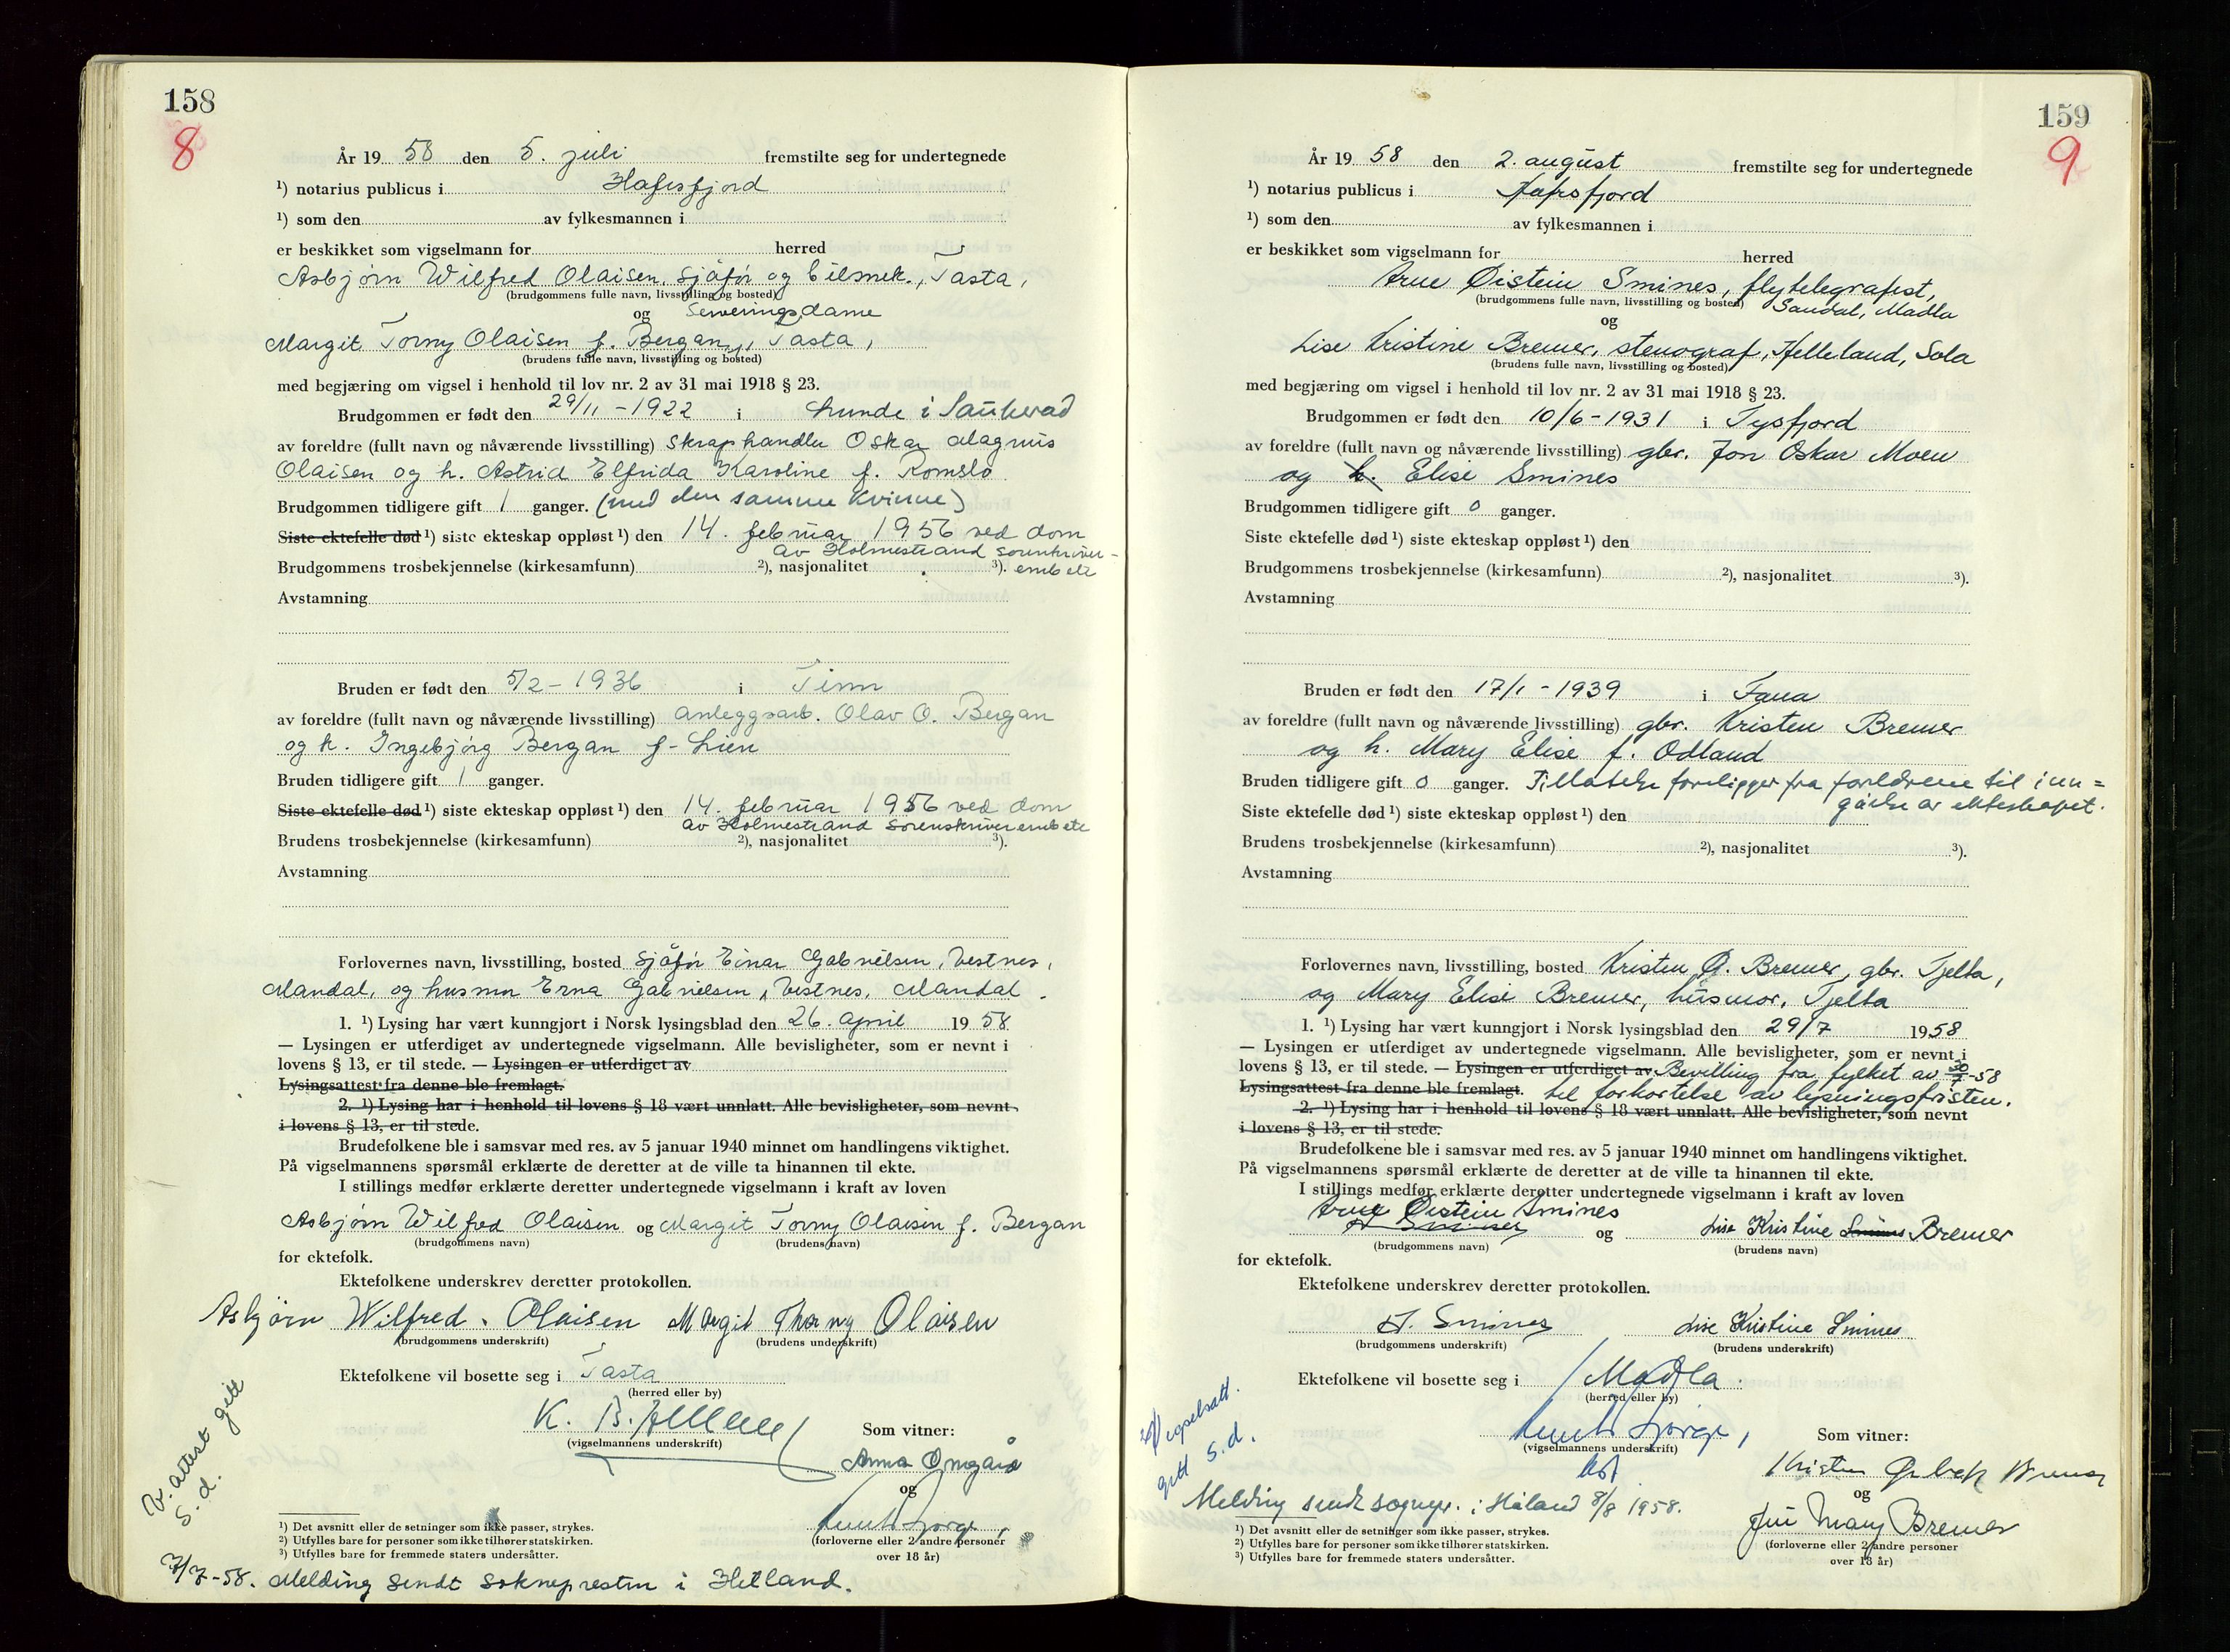 158
8
År 19 58 den 5. juli fremstilte seg for undertegnede
¹) notarius publicus i Hafrsfjord
¹) som den av fylkesmannen i
er beskikket som vigselmann for herred
Asbjørn Wilfred Olaisen, sjåfør og bilmek., Tasta,
(brudgommens fulle navn, livsstilling og bosted)
og Serveringsdame
Margit Torny Olaisen f. Bergan, Tasta,
(brudens fulle navn, livsstilling og bosted)
med begjæring om vigsel i henhold til lov nr. 2 av 31 mai 1918 § 23.
Brudgommen er født den 29/11 - 1922 i Lunde i Sauherad
av foreldre (fullt navn og nåværende livsstilling) skraphandler Oskar Magnus
Olaisen og h. Astrid Elfrida Karoline f. Romslo
Brudgommen tidligere gift 1 ganger. (med den samme kvinne)
Siste ektefelle død ¹) siste ekteskap oppløst ¹) den 14. februar 1956 ved dom
av Holmestrand sorenskriver-
Brudgommens trosbekjennelse (kirkesamfunn) ²), nasjonalitet ³). embete
Avstamning
Bruden er født den 5/2 - 1936 i Tinn
av foreldre (fullt navn og nåværende livsstilling) anleggsarb. Olav O. Bergan
og h. Ingebjørg Bergan f. Lien
Bruden tidligere gift 1 ganger.
Siste ektefelle død ¹) siste ekteskap oppløst ¹) den 14. februar 1956 ved dom
av Holmestrand sorenskriverembete
Brudens trosbekjennelse (kirkesamfunn) ²), nasjonalitet ³).
Avstamning
Forlovernes navn, livsstilling, bosted sjåfør Einar Gabrielsen, Vestnes,
Mandal, og husmor Erna Gabrielsen, Vestnes, Mandal.
1. ¹) Lysing har vært kunngjort i Norsk lysingsblad den 26. april 19 58
— Lysingen er utferdiget av undertegnede vigselmann. Alle bevisligheter, som er nevnt i
lovens § 13, er til stede. — Lysingen er utferdiget av
Lysingsattest fra denne ble fremlagt.
2. ¹) Lysing har i henhold til lovens § 18 vært unnlatt. Alle bevisligheter, som nevnt
i lovens § 13, er til stede.
Brudefolkene ble i samsvar med res. av 5 januar 1940 minnet om handlingens viktighet.
På vigselmannens spørsmål erklærte de deretter at de ville ta hinannen til ekte.
I stillings medfør erklærte deretter undertegnede vigselmann i kraft av loven
Asbjørn Wilfred Olaisen og Margit Torny Olaisen f. Bergan
(brudgommens navn) (brudens navn)
for ektefolk.
Ektefolkene underskrev deretter protokollen.
Asbjørn Wilfred. Olaisen Margit Thorny Olaisen
(brudgommens underskrift) (brudens underskrift)
Ektefolkene vil bosette seg i Tasta
(herred eller by)
K. B.
(vigselmannens underskrift)
Som vitner:
Anna
og
(forloverne eller 2 andre personer
over 18 år)
V. attest gitt
s. d.
¹) Det avsnitt eller de setninger som ikke passer, strykes.
²) Utfylles bare for personer som ikke tilhører statskirken.
³) Utfylles bare for fremmede staters undersåtter.
7/7-58. Melding sendt sokneprestен i Hetland.
159
9
År 19 58 den 2. august fremstilte seg for undertegnede
¹) notarius publicus i Hafrsfjord
¹) som den av fylkesmannen i
er beskikket som vigselmann for herred
Arne Øistein Smines, flytelegrafist,
(brudgommens fulle navn, livsstilling og bosted) Sandal, Madla
og
Lise Kristine Bremer, stenograf, Helleland, Sola
(brudens fulle navn, livsstilling og bosted)
med begjæring om vigsel i henhold til lov nr. 2 av 31 mai 1918 § 23.
Brudgommen er født den 10/6 - 1931 i Tysfjord
av foreldre (fullt navn og nåværende livsstilling) gbr. Jon Oskar Moen
og h. Elise Smines
Brudgommen tidligere gift 0 ganger.
Siste ektefelle død ¹) siste ekteskap oppløst ¹) den
Brudgommens trosbekjennelse (kirkesamfunn) ²), nasjonalitet ³).
Avstamning
Bruden er født den 17/1 - 1939 i Fana
av foreldre (fullt navn og nåværende livsstilling) gbr. Kristen Bremer
og h. Mary Elise f. Odland
Bruden tidligere gift 0 ganger. Tillatelse foreligger fra foreldrene til inn=
gåelse av ekteskapet.
Siste ektefelle død ¹) siste ekteskap oppløst ¹) den
Brudens trosbekjennelse (kirkesamfunn) ²), nasjonalitet ³).
Avstamning
Forlovernes navn, livsstilling, bosted Kristen Ø. Bremer, gbr. Tjelta,
og Mary Elise Bremer, husmor, Tjelta
1. ¹) Lysing har vært kunngjort i Norsk lysingsblad den 29/7 1958
— Lysingen er utferdiget av undertegnede vigselmann. Alle bevisligheter, som er nevnt i
lovens § 13, er til stede. — Lysingen er utferdiget av Bevilling fra fylket av 30/7-58
Lysingsattest fra denne ble fremlagt. til forkortelse av lysningsfristen.
2. ¹) Lysing har i henhold til lovens § 18 vært unnlatt. Alle bevisligheter, som nevnt
i lovens § 13, er til stede.
Brudefolkene ble i samsvar med res. av 5 januar 1940 minnet om handlingens viktighet.
På vigselmannens spørsmål erklærte de deretter at de ville ta hinannen til ekte.
I stillings medfør erklærte deretter undertegnede vigselmann i kraft av loven
Arne Øistein Smines
A Smines og Lise Kristine Smines Bremer
(brudgommens navn) (brudens navn)
for ektefolk.
Ektefolkene underskrev deretter protokollen.
A. Smines Lise Kristine Smines
(brudgommens underskrift) (brudens underskrift)
Ektefolkene vil bosette seg i Madla
(herred eller by)
(vigselmannens underskrift)
Som vitner:
Kristen Bremer
og
Mary Bremer
(forloverne eller 2 andre personer
over 18 år)
Vigselsatt.
gitt s.d.
Melding sendt sognepr. i Håland 8/8 1958.
¹) Det avsnitt eller de setninger som ikke passer, strykes.
²) Utfylles bare for personer som ikke tilhører statskirken.
³) Utfylles bare for fremmede staters undersåtter.